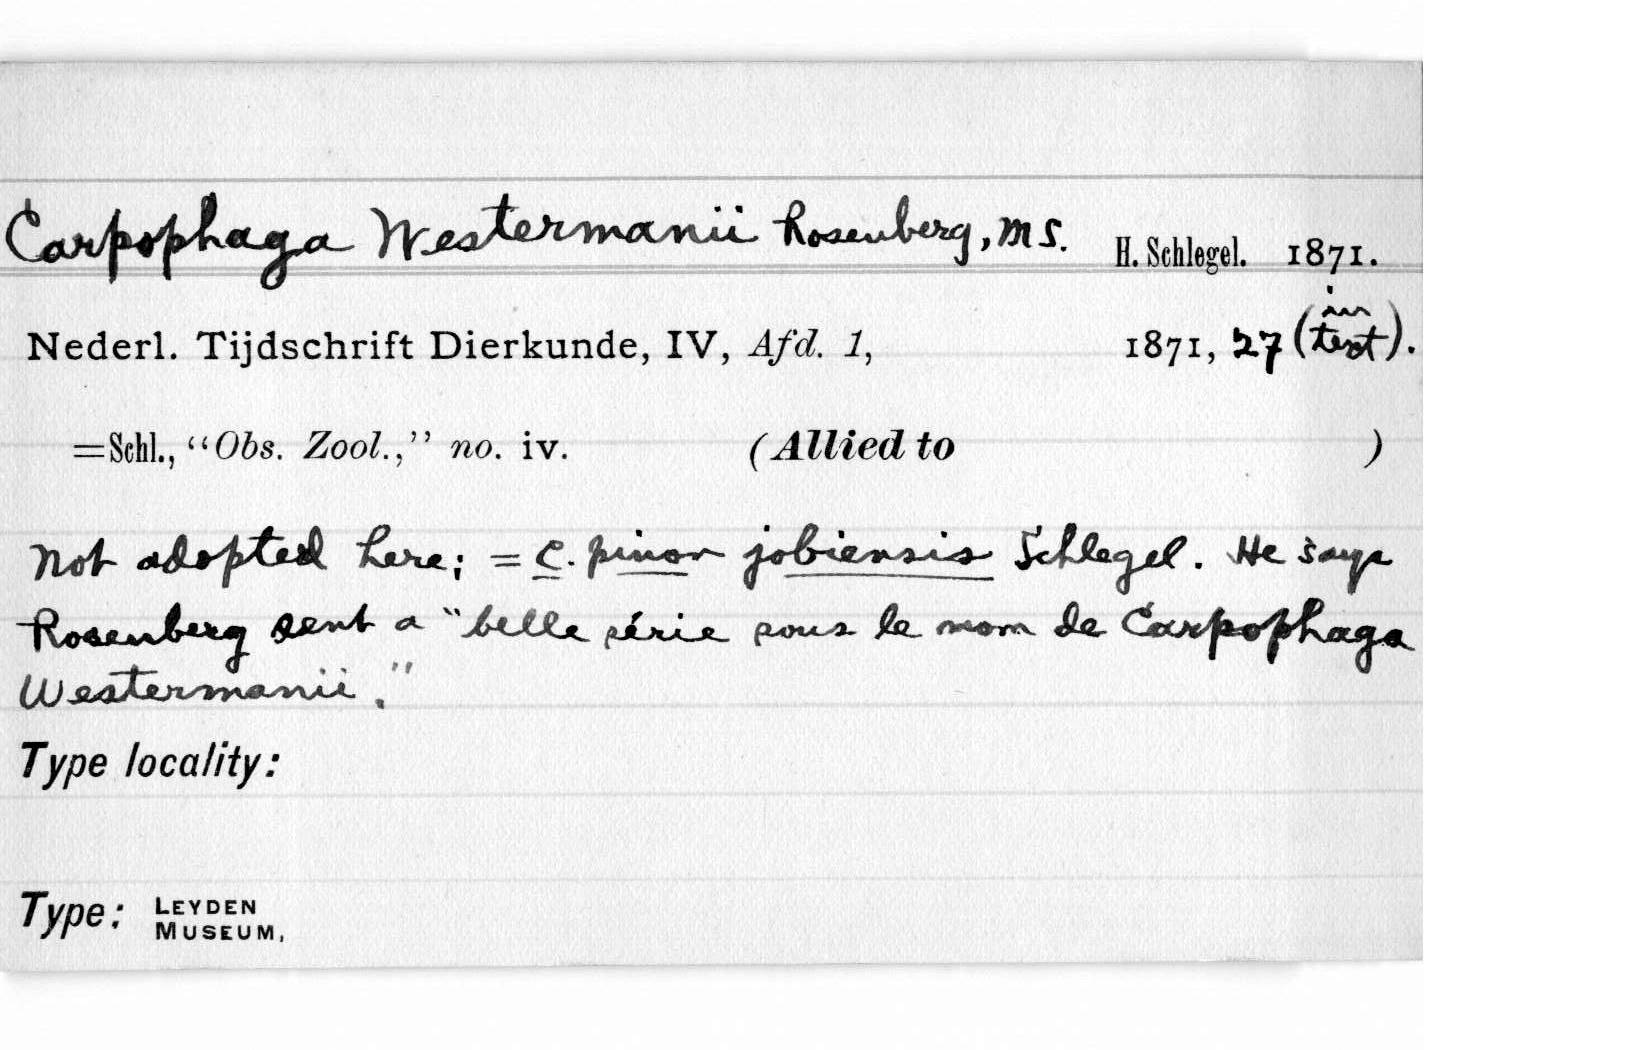 Carpophaga Westermanii Rosenberg, MS. H. Schlegel. 1871.
Nederl. Tijdschrift Dierkunde, IV, Afd. 1, 1871, 27 (in text).
=Schl., “Obs. Zool.,” no. iv. (Allied to )
Not adopted here; = C. pinon jobiensis Schlegel. He says
Rosenberg sent a "belle série sous le nom de Carpophaga
Westermanii."
Type locality:
Type: LEYDEN
MUSEUM,